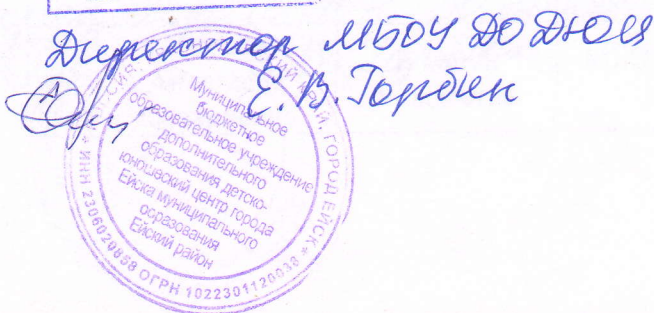 Директор МБОУ ДО ДЮЦ
Е. В. Горбик
Муниципальное
бюджетное
образовательное учреждение
дополнительного
образования детско-
юношеский центр города
Ейска муниципального
образования
Ейский район
КРАЙ, ГОРОД ЕЙСК *
* ИНН 2306020858 ОГРН 1022301120038 *